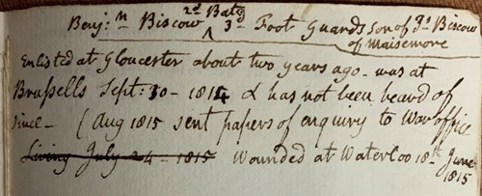 2d Batn
Benj:n Biscow ^ 3d Foot Guards son of Jas Biscow
of Maisemore
Enlisted at Gloucester about two years ago - was at
Brussells Sept: 30 - 1814 & has not been heard of
since - (Aug 1815 sent papers of enquiry to War office
Living July 24 - 1815 Wounded at Waterloo 18th June
1815